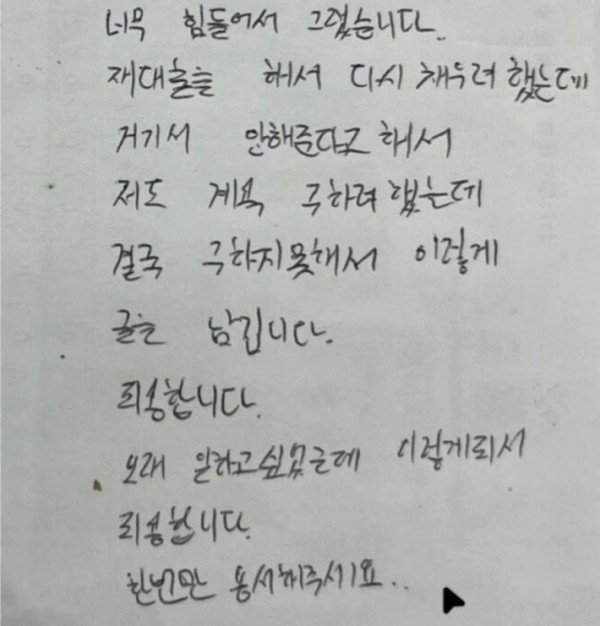 너무 힘들어서 그랬습니다.
재대출을 해서 다시 채우려 했는데
거기서 안해준다고 해서
저도 계속 구하려 했는데
결국 구하지못해서 이렇게
글을 남깁니다.
죄송합니다.
오래 일하고싶었는데 이렇게되서
죄송합니다.
한번만 용서해주세요..